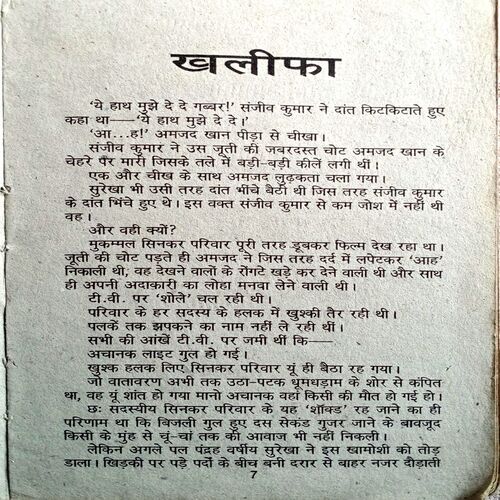 खलीफा
‘ये हाथ मुझे दे दे गब्बर!’ संजीव कुमार ने दांत किटकिटाते हुए
कहा था——‘ये हाथ मुझे दे दे।’
‘आ...ह!’ अमजद खान पीड़ा से चीखा।
संजीव कुमार ने उस जूती की जबरदस्त चोट अमजद खान के
चेहरे पैर मारी जिसके तले में बड़ी-बड़ी कीलें लगी थीं।
एक और चीख के साथ अमजद लुढ़कता चला गया।
सुरेखा भी उसी तरह दांत भींचे बैठी थी जिस तरह संजीव कुमार
के दांत भिंचे हुए थे। इस वक्त संजीव कुमार से कम जोश में नहीं थी
वह।
और वही क्यों?
मुकम्मल सिनकर परिवार पूरी तरह डूबकर फिल्म देख रहा था।
जूती की चोट पड़ते ही अमजद ने जिस तरह दर्द में लपेटकर ‘आह’
निकाली थी, वह देखने वालों के रोंगटे खड़े कर देने वाली थी और साथ
ही अपनी अदाकारी का लोहा मनवा लेने वाली थी।
टी.वी. पर ‘शोले’ चल रही थी।
परिवार के हर सदस्य के हलक में खुश्की तैर रही थी।
पलकें तक झपकने का नाम नहीं ले रही थीं।
सभी की आंखें टी.वी. पर जमी थीं कि—
अचानक लाइट गुल हो गई।
खुश्क हलक लिए सिनकर परिवार यूं ही बैठा रह गया।
जो वातावरण अभी तक उठा-पटक धूमधड़ाम के शोर से कंपित
था, वह यूं शांत हो गया मानो अचानक वहां किसी की मौत हो गई हो।
छः सदस्यीय सिनकर परिवार के यह ‘शॉक्ड’ रह जाने का ही
परिणाम था कि बिजली गुल हुए दस सेकंड गुजर जाने के बावजूद
किसी के मुंह से चूं-चां तक की आवाज भी नहीं निकली।
लेकिन अगले पल पंद्रह वर्षीय सुरेखा ने इस खामोशी को तोड़
डाला। खिड़की पर पड़े पर्दो के बीच बनी दरार से बाहर नजर दौड़ाती
7